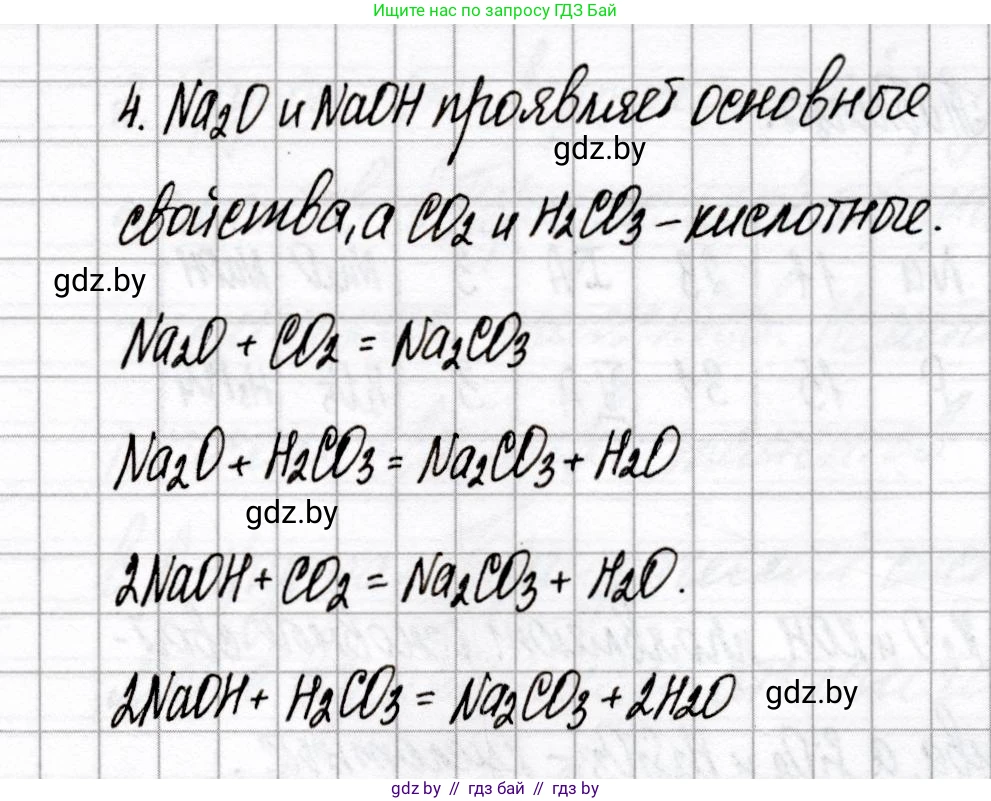 Ищите нас по запросу ГДЗ Бай
4. Na₂O и NaOH проявляет основные
gdz.by
свойства, а CO₂ и H₂CO₃ – кислотные.
gdz.by
Na₂O + CO₂ = Na₂CO₃
Na₂O + H₂CO₃ = Na₂CO₃ + H₂O
gdz.by
2NaOH + CO₂ = Na₂CO₃ + H₂O.
2NaOH + H₂CO₃ = Na₂CO₃ + 2H₂O
gdz.by
gdz.by // гдз бай // гдз by